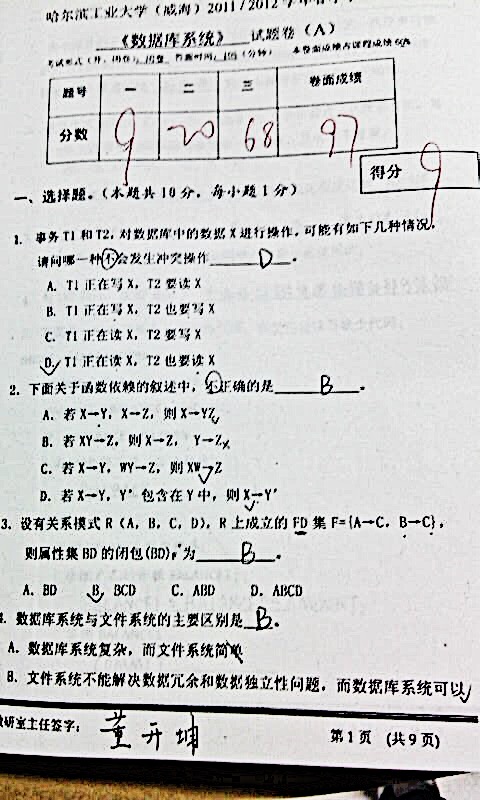 哈尔滨工业大学（威海）2011/2012学年春季
《数据库系统》 试题卷（A）
考试形式（开、闭卷）：闭卷 答题时间：（分钟） 本卷面成绩占课程成绩 60%
题号 一 二 三 卷面成绩
分数 9 20 68 97
得分 9
一、选择题。（本题共 10 分，每小题 1 分）
1. 事务 T1 和 T2，对数据库中的数据 X 进行操作，可能有如下几种情况，
请问哪一种不会发生冲突操作 D 。
A. T1 正在写 X，T2 要读 X
B. T1 正在写 X，T2 也要写 X
C. T1 正在读 X，T2 要写 X
D. T1 正在读 X，T2 也要读 X
2. 下面关于函数依赖的叙述中，不正确的是 B 。
A. 若 X→Y，X→Z，则 X→YZ
B. 若 XY→Z，则 X→Z，Y→Z
C. 若 X→Y，WY→Z，则 XW→Z
D. 若 X→Y，Y′包含在 Y 中，则 X→Y′
3. 设有关系模式 R（A，B，C，D），R 上成立的 FD 集 F={A→C，B→C}，
则属性集 BD 的闭包(BD)F+为 B 。
A. BD B. BCD C. ABD D. ABCD
4. 数据库系统与文件系统的主要区别是 B 。
A. 数据库系统复杂，而文件系统简单
B. 文件系统不能解决数据冗余和数据独立性问题，而数据库系统可以
教研室主任签字： 董开坤
第 1 页 （共 9 页）